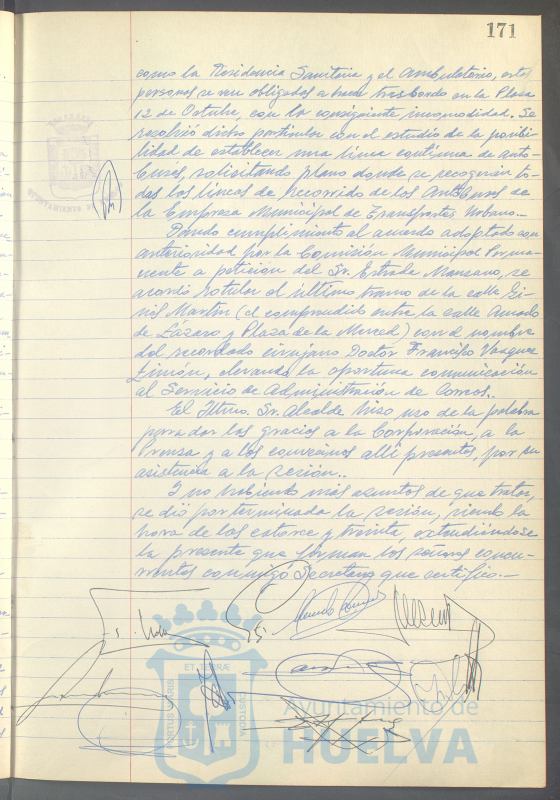 171
como la Residencia Sanitaria y el Ambulatorio, estas
personas se ven obligadas a hacer trasbordo en la Plaza
12 de Octubre, con la consiguiente incomodidad. Se
resolvió dicho particular con el estudio de la posibi-
lidad de establecer una línea continua de auto-
buses, solicitando plano donde se recogerían to-
das las líneas de recorrido de los Autobuses de
la Empresa Municipal de Transportes Urbano.-
Dando cumplimiento al acuerdo adoptado con
anterioridad por la Comisión Municipal Perma-
nente a petición del Sr. Estrada Manzano, se
acordó rotular el último tramo de la calle Gi-
nés Martín (el comprendido entre la calle Amado
de Lázaro y Plaza de la Merced) con el nombre
del recordado cirujano Doctor Francisco Vazquez
Limón, elevando la oportuna comunicación
al Servicio de Administración de Correos.-
El Iltmo. Sr. Alcalde hizo uso de la palabra
para dar las gracias a la Corporación, a la
Prensa y a los convecinos allí presentes, por su
asistencia a la sesión.-
Y no habiendo más asuntos de que tratar,
se dió por terminada la sesión, siendo la
hora de las catorce y treinta, extendiéndose
la presente que firman los señores concu-
rrentes conmigo Secretario que certifico.-
PORTUS MARIS
ET TERRAE
CUSTODIA
Ayuntamiento de
HUELVA